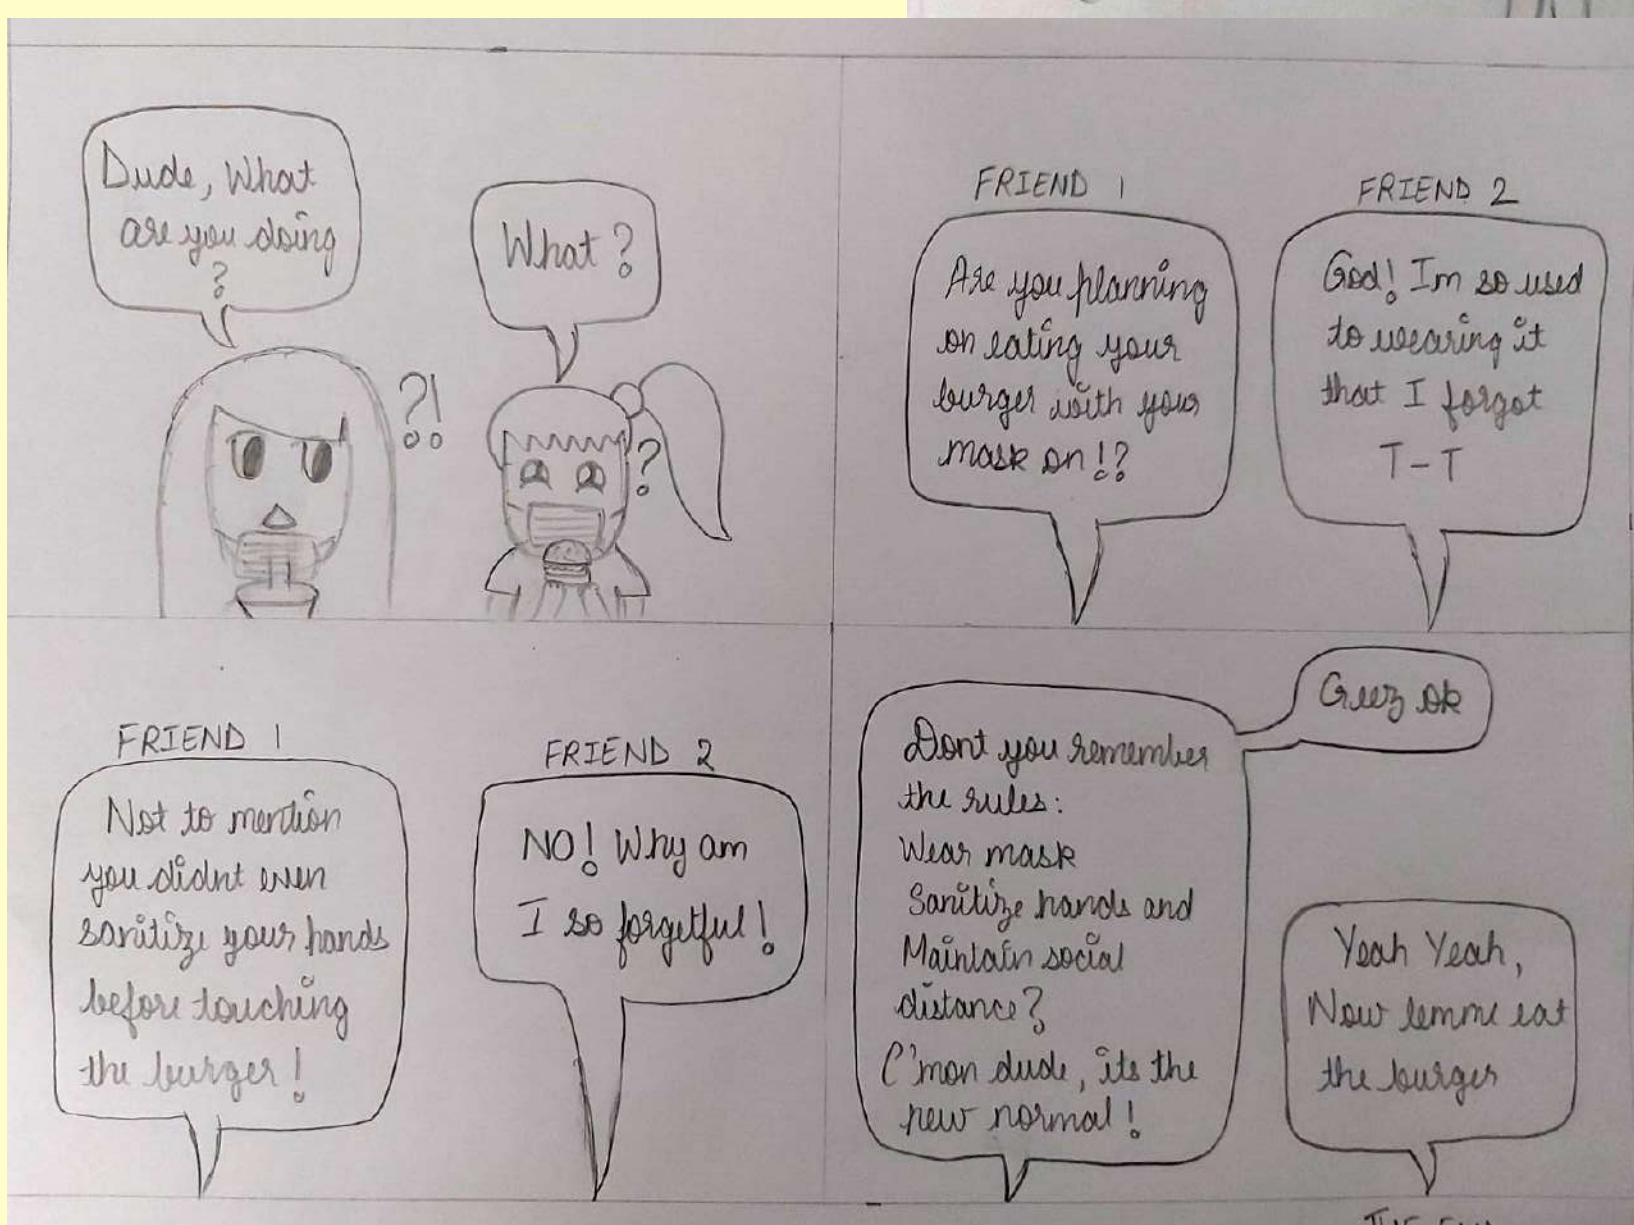 Dude, What
are you doing
?
What?
?!
?
FRIEND 1
Are you planning
on eating your
burger with your
mask on!?
FRIEND 2
God! Im so used
to wearing it
that I forgot
T-T
FRIEND 1
Not to mention
you didnt even
sanitize your hands
before touching
the burger!
FRIEND 2
NO! Why am
I so forgetful!
Dont you remember
the rules:
Wear mask
Sanitize hands and
Maintain social
distance?
C'mon dude, its the
new normal!
Geez ok
Yeah Yeah,
Now lemme eat
the burger